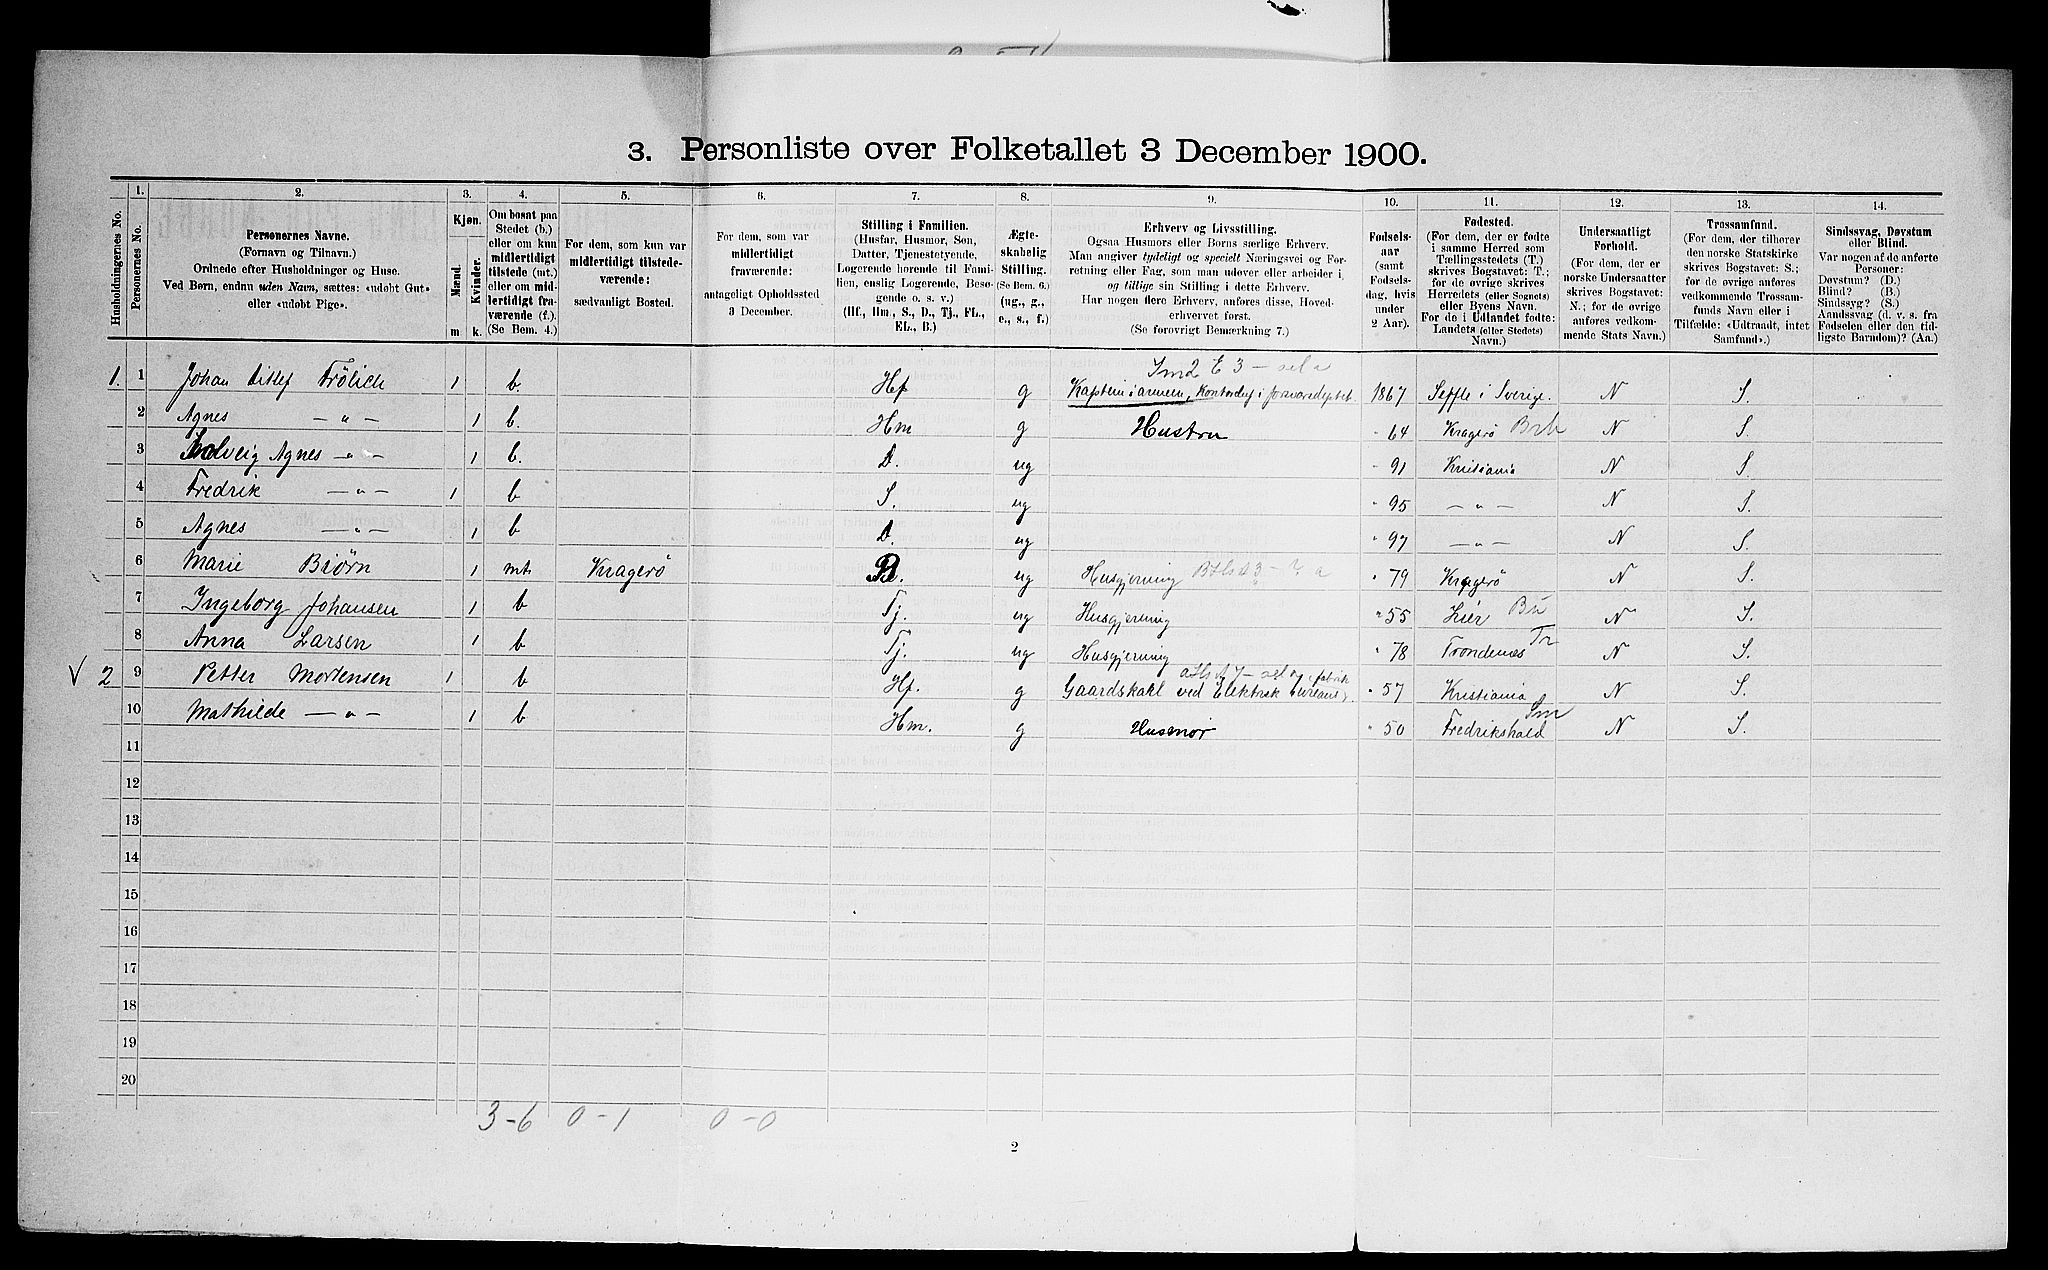 3. Personliste over Folketallet 3 December 1900.
Husholdningernes No.
1.
Personernes No.
2.
Personernes Navne.
(Fornavn og Tilnavn.)
Ordnede efter Husholdninger og Huse.
Ved Børn, endnu uden Navn, sættes: «udøbt Gut»
eller «udøbt Pige».
3.
Kjøn.
Mænd.
Kvinder.
m
k.
4.
Om bosat paa
Stedet (b.)
eller om kun
midlertidigt
tilstede (mt.)
eller om mid-
lertidigt fra-
værende (f.).
(Se Bem. 4.)
5.
For dem, som kun var
midlertidigt tilstede-
værende:
sædvanligt Bosted.
6.
For dem, som var
midlertidigt
fraværende:
antageligt Opholdssted
3 December.
7.
Stilling i Familien.
(Husfar, Husmor, Søn,
Datter, Tjenestetyende,
Logerende hørende til Fami-
lien, enslig Logerende, Besø-
gende o. s. v.)
(Hf., Hm., S., D., Tj., FL.,
EL., B.)
8.
Ægte-
skabelig
Stilling.
(Se Bem. 6.)
(ug., g.,
e., s., f.)
9.
Erhverv og Livsstilling.
Ogsaa Husmors eller Børns særlige Erhverv.
Man angiver tydeligt og specielt Næringsvei og For-
retning eller Fag, som man udøver eller arbeider i,
og tillige sin Stilling i dette Erhverv.
Har nogen flere Erhverv, anføres disse, Hoved-
erhvervet først.
(Se forøvrigt Bemærkning 7.)
10.
Fødsels-
aar
(samt
Fødsels-
dag, hvis
under
2 Aar).
11.
Fødested.
(For dem, der er fødte
i samme Herred som
Tællingsstedets (T.)
skrives Bogstavet: T.;
for de øvrige skrives
Herredets (eller Sognets)
eller Byens Navn.
For de i Udlandet fødte:
Landets (eller Stedets)
Navn.)
12.
Undersaatligt
Forhold.
(For dem, der er
norske Undersaatter
skrives Bogstavet:
N.; for de øvrige
anføres vedkom-
mende Stats Navn.)
13.
Trossamfund.
(For dem, der tilhører
den norske Statskirke
skrives Bogstavet: S.;
for de øvrige anføres
vedkommende Trossam-
funds Navn eller i
Tilfælde: «Udtraadt, intet
Samfund».)
14.
Sindssvag, Døvstum
eller Blind.
Var nogen af de anførte
Personer:
Døvstum? (D.)
Blind? (B.)
Sindssyg? (S.)
Aandssvag (d. v. s. fra
Fødselen eller den tid-
ligste Barndom)? (Aa.)
1. 1 Johan Ditlef Frölich 1 b Hf g Kaptein i armeen, Kontorchef i forsvarsdeptet. 1867 Seffle i Sverige. N S.
2 Agnes — „ — 1 b. Hm g Hustru - 64 Kragerø N S.
3 Solveig Agnes — „ — 1 b. D. ug - 91 Kristiania N S.
4 Fredrik — „ — 1 b S. ug " 95 — „ — N S.
5 Agnes — „ — 1 b D. ug " 97 — „ — N S.
6 Marie Biørn 1 mt. Kragerø B. ug Husgjerning " 79 Kragerø N S.
7 Ingeborg Johansen 1 b Tj. ug Husgjerning " 55 Lier Bu N S.
8 Anna Larsen 1 b Tj. ug Husgjerning " 78 Trondenæs Tr N S.
V 2 9 Petter Mortensen 1 b Hf. g Gaardskarl ved Elektrisk Bureaus fabrik " 57 Kristiania N S.
10 Mathilde — „ — 1 b Hm. g Husmor " 50 Fredrikshald Sm N S.
11
12
13
14
15
16
17
18
19
20
3 - 6 0 - 1 0 - 0
2